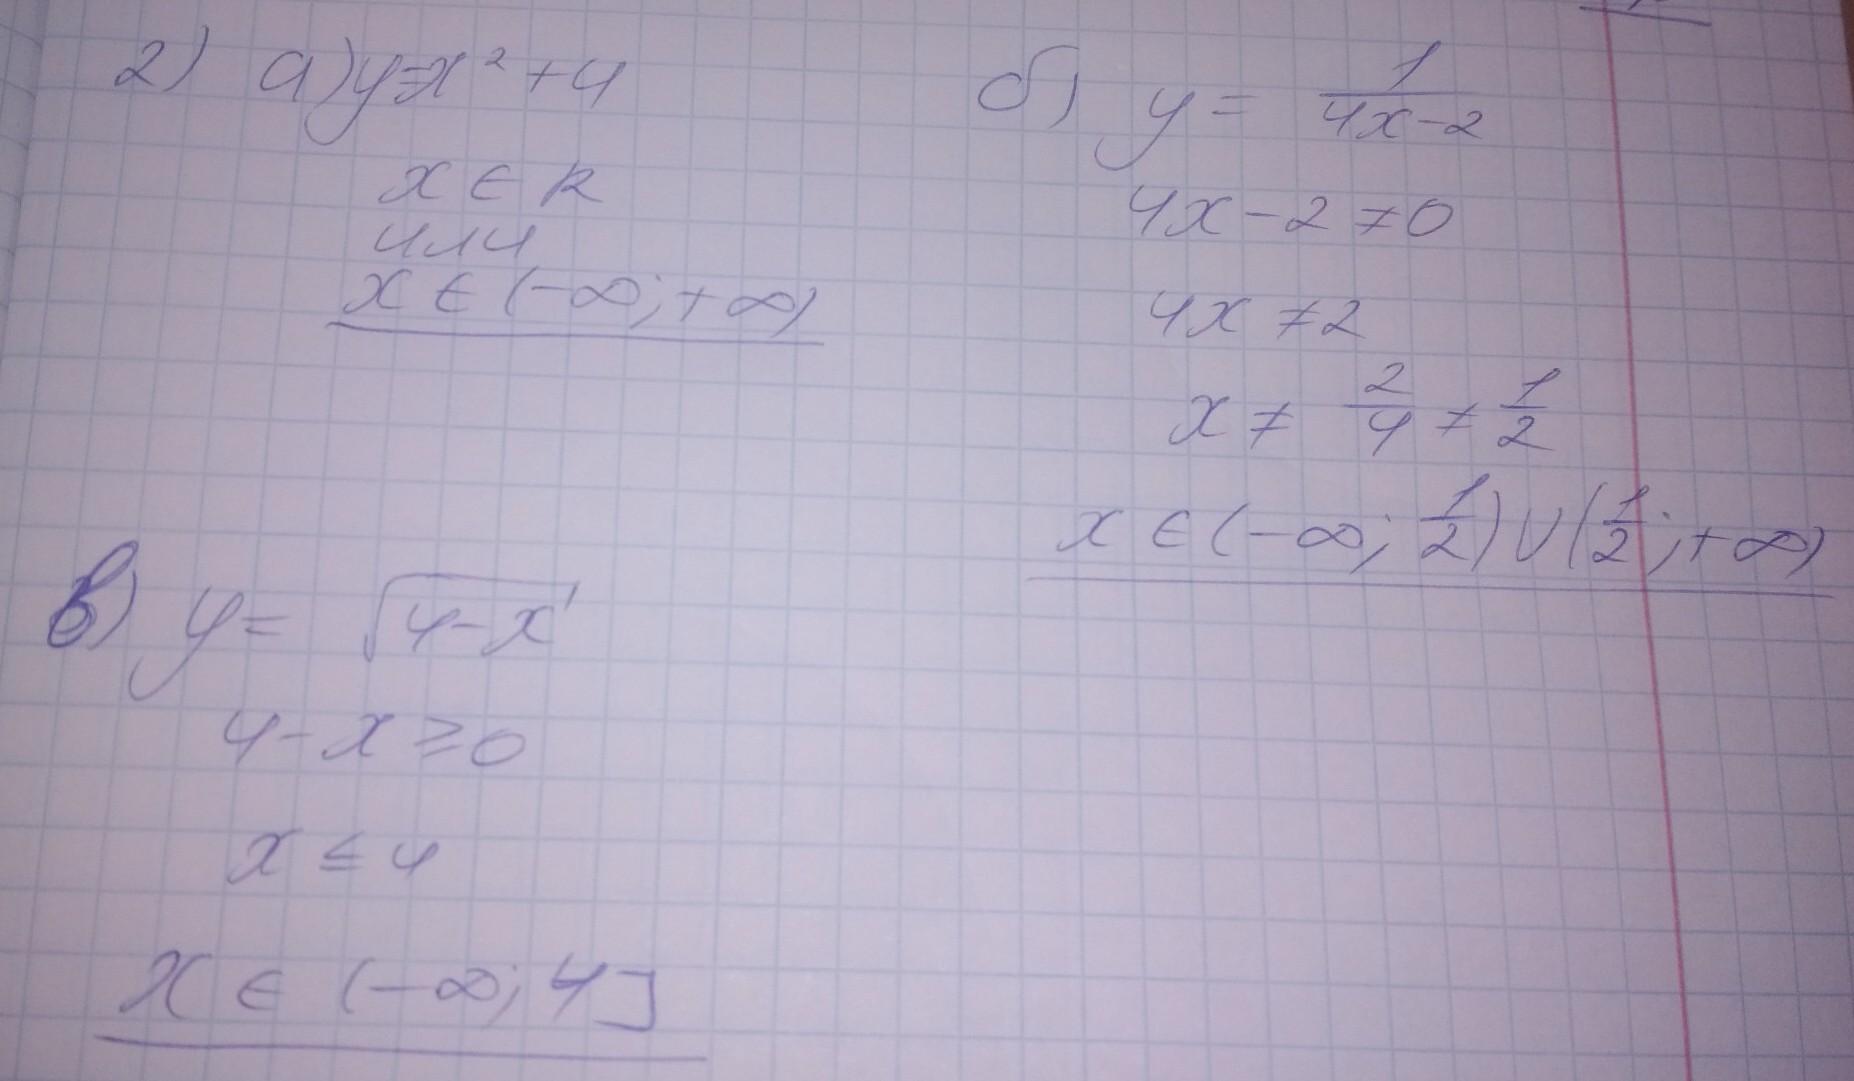 2) а) y=x² + 4
x ∈ R
или
x ∈ (-∞; +∞)
б) y = 1/(4x-2)
4x - 2 ≠ 0
4x ≠ 2
x ≠ 2/4 ≠ 1/2
x ∈ (-∞; 1/2) ∪ (1/2; +∞)
в) y = √(4-x)
4 - x ≥ 0
x ≤ 4
x ∈ (-∞; 4]